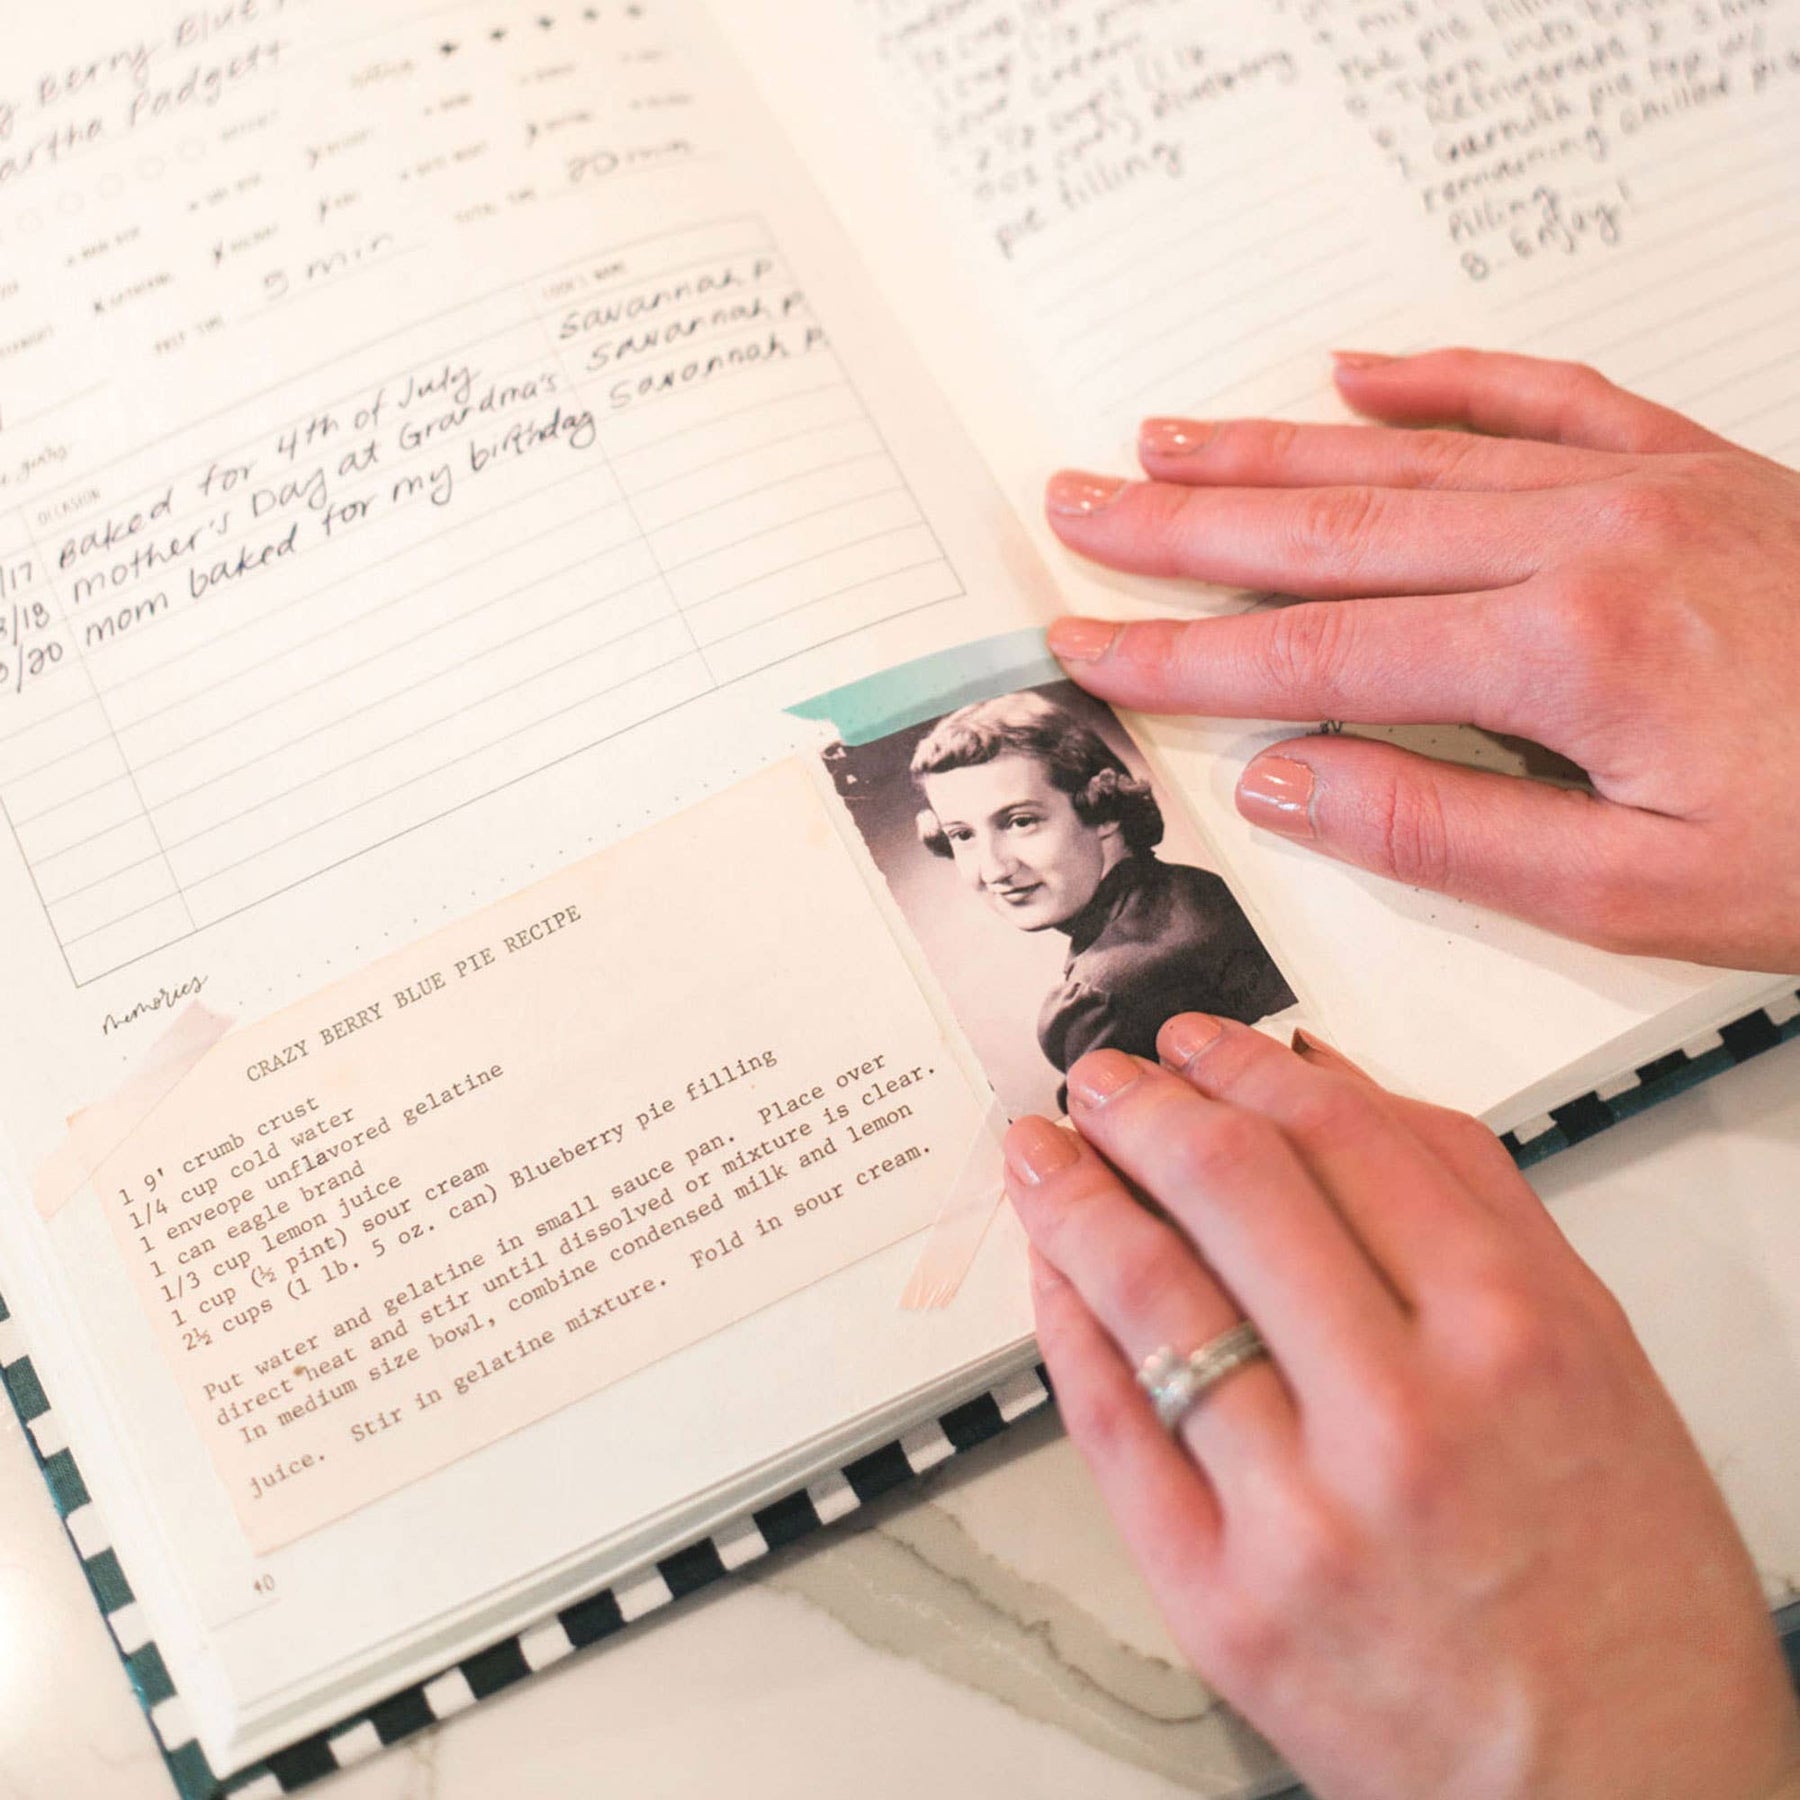 Berry Blue
Martha Padgett
5 min
20 min
PREP TIME
TOTAL TIME
OCCASION
COOK'S NAME
/17 Baked for 4th of July Savannah P
/18 mother's Day at Grandma's Savannah P.
/20 mom baked for my birthday Savannah P.
memories
CRAZY BERRY BLUE PIE RECIPE
1 9' crumb crust
1/4 cup cold water
1 enveope unflavored gelatine
1 can eagle brand
1/3 cup lemon juice
1 cup (½ pint) sour cream
2½ cups (1 lb. 5 oz. can) Blueberry pie filling
Put water and gelatine in small sauce pan. Place over
direct heat and stir until dissolved or mixture is clear.
In medium size bowl, combine condensed milk and lemon
juice. Stir in gelatine mixture. Fold in sour cream.
40
sour cream
2 ½ cups (1 lb
oz can) blueberry
pie filling
the pie filling
Turn into
Refrigerate
7. Garnish pie top w/
remaining chilled pie
filling
8. Enjoy!